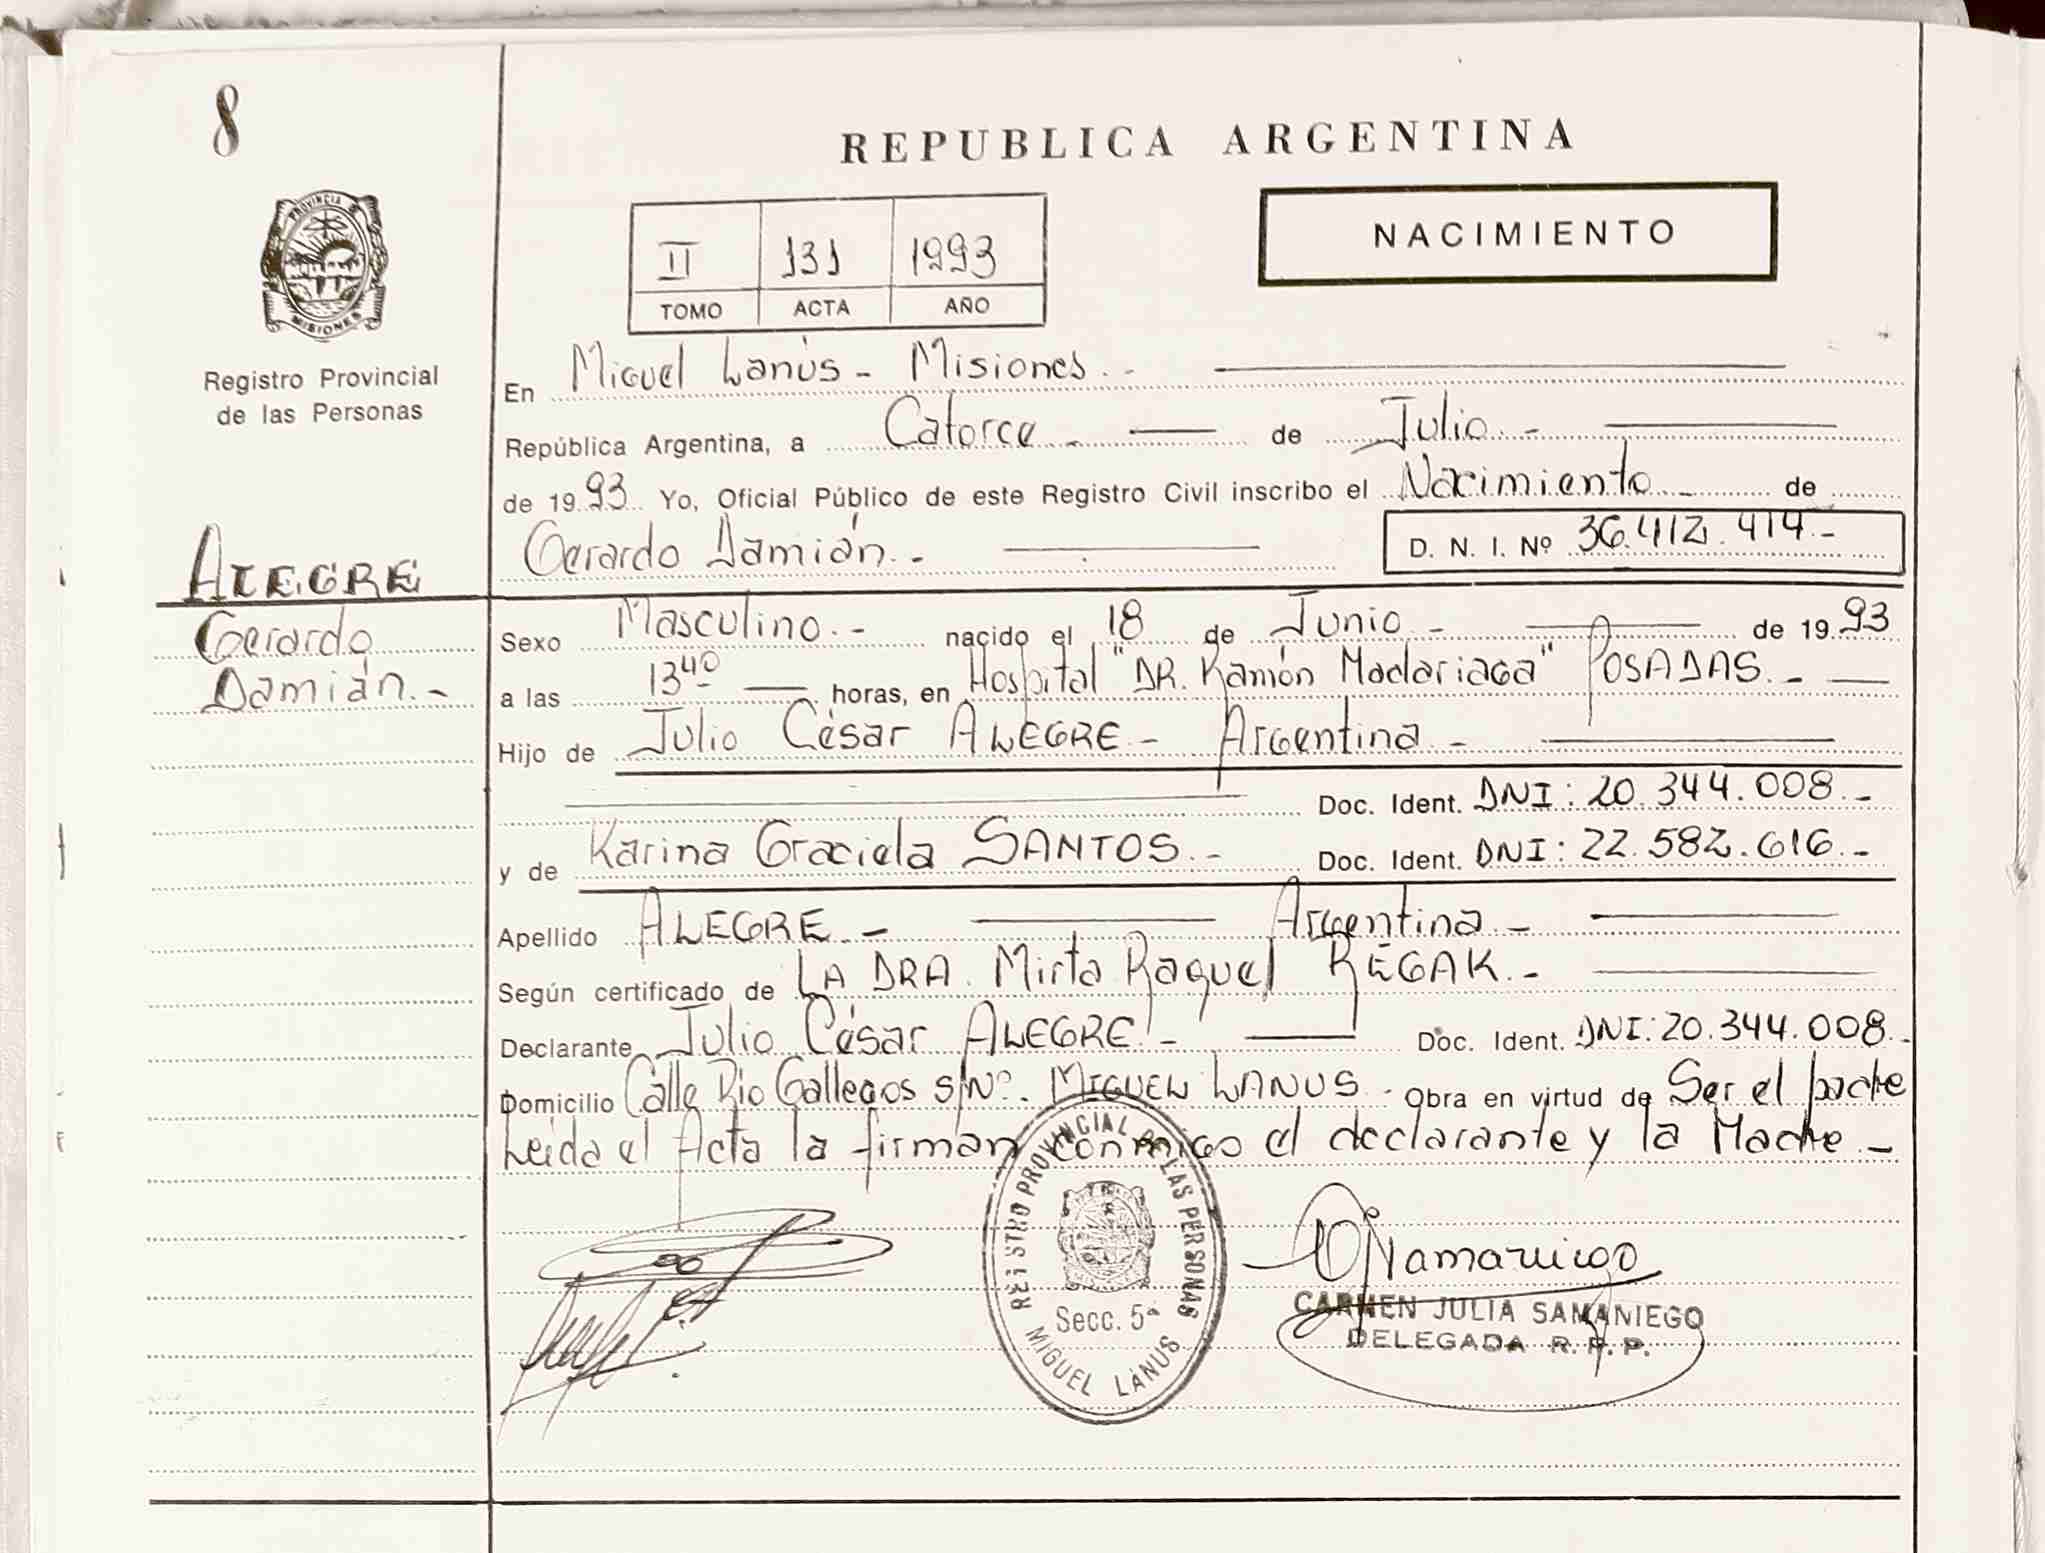 8
REPUBLICA ARGENTINA
PROVINCIA DE
MISIONES
Registro Provincial
de las Personas
II 131 1993
TOMO ACTA AÑO
NACIMIENTO
En Miguel Lanús - Misiones.-
República Argentina, a Catorce.- de Julio.-
de 1993 Yo, Oficial Público de este Registro Civil inscribo el Nacimiento.- de
Gerardo Damián.- D. N. I. Nº 36.412.414.-
ALEGRE
Gerardo
Damián.-
Sexo Masculino.- nacido el 18 de Junio.- de 1993
a las 13 40 horas, en Hospital "DR. Ramón Madariaga" POSADAS.-
Hijo de Julio César ALEGRE.- Argentina.-
Doc. Ident. DNI: 20.344.008.-
y de Karina Graciela SANTOS.- Doc. Ident. DNI: 22.582.616.-
Apellido ALEGRE.- Argentina.-
Según certificado de LA DRA. Mirta Raquel REGAK.-
Declarante Julio César ALEGRE.- Doc. Ident. DNI: 20.344.008.-
Domicilio Calle Rio Gallegos S/Nº. MIGUEL LANUS.- Obra en virtud de Ser el padre
Leida el Acta la firman conmigo el declarante y la Madre.-
REGISTRO PROVINCIAL DE LAS PERSONAS
Secc. 5ª
MIGUEL LANUS
CARMEN JULIA SAMANIEGO
DELEGADA R. P. P.